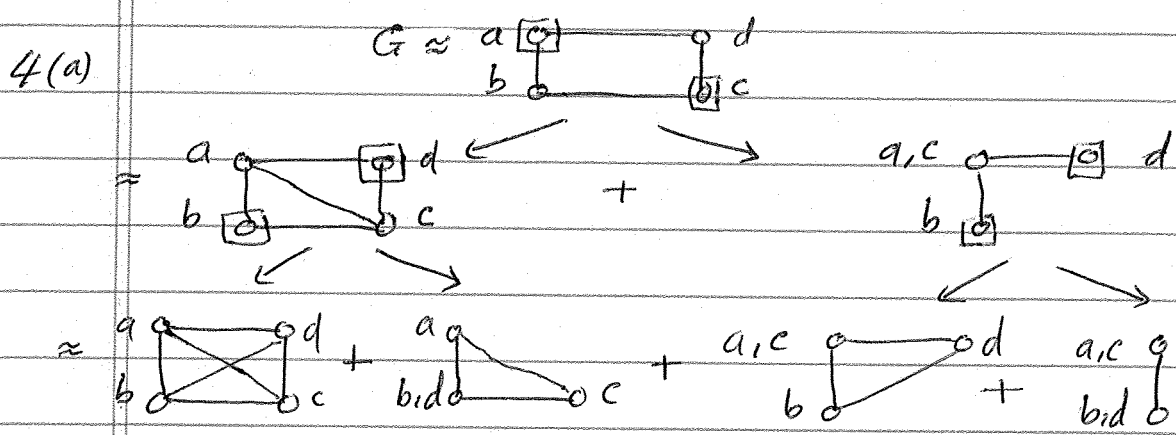 4(a) G ≈ a d
b c
≈ a d + a,c d
b c b
≈ a d + a + a,c d + a,c
b c b,d c b b,d